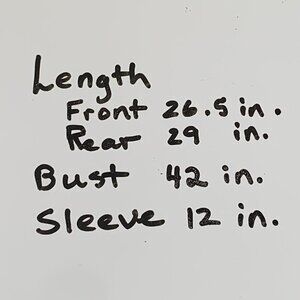 Length
Front 26.5 in.
Rear 29 in.
Bust 42 in.
Sleeve 12 in.